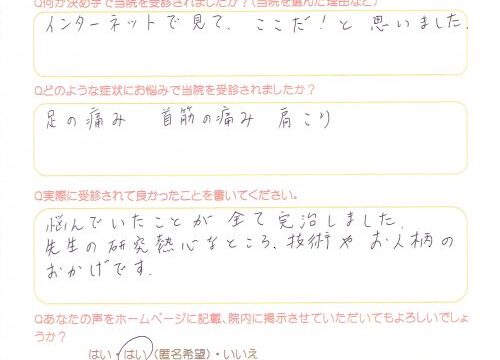 Q何が決め手で当院を受診されましたか？(当院を選んだ理由など)
インターネットで見て、ここだ！と思いました。
Qどのような症状にお悩みで当院を受診されましたか？
足の痛み　首筋の痛み　肩こり
Q実際に受診されて良かったことを書いてください。
悩んでいたことが全て完治しました。
先生の研究熱心なところ、技術やお人柄の
おかげです。
Qあなたの声をホームページに記載、院内に掲示させていただいてもよろしいでしょ
うか？
はい・はい(匿名希望)・いいえ